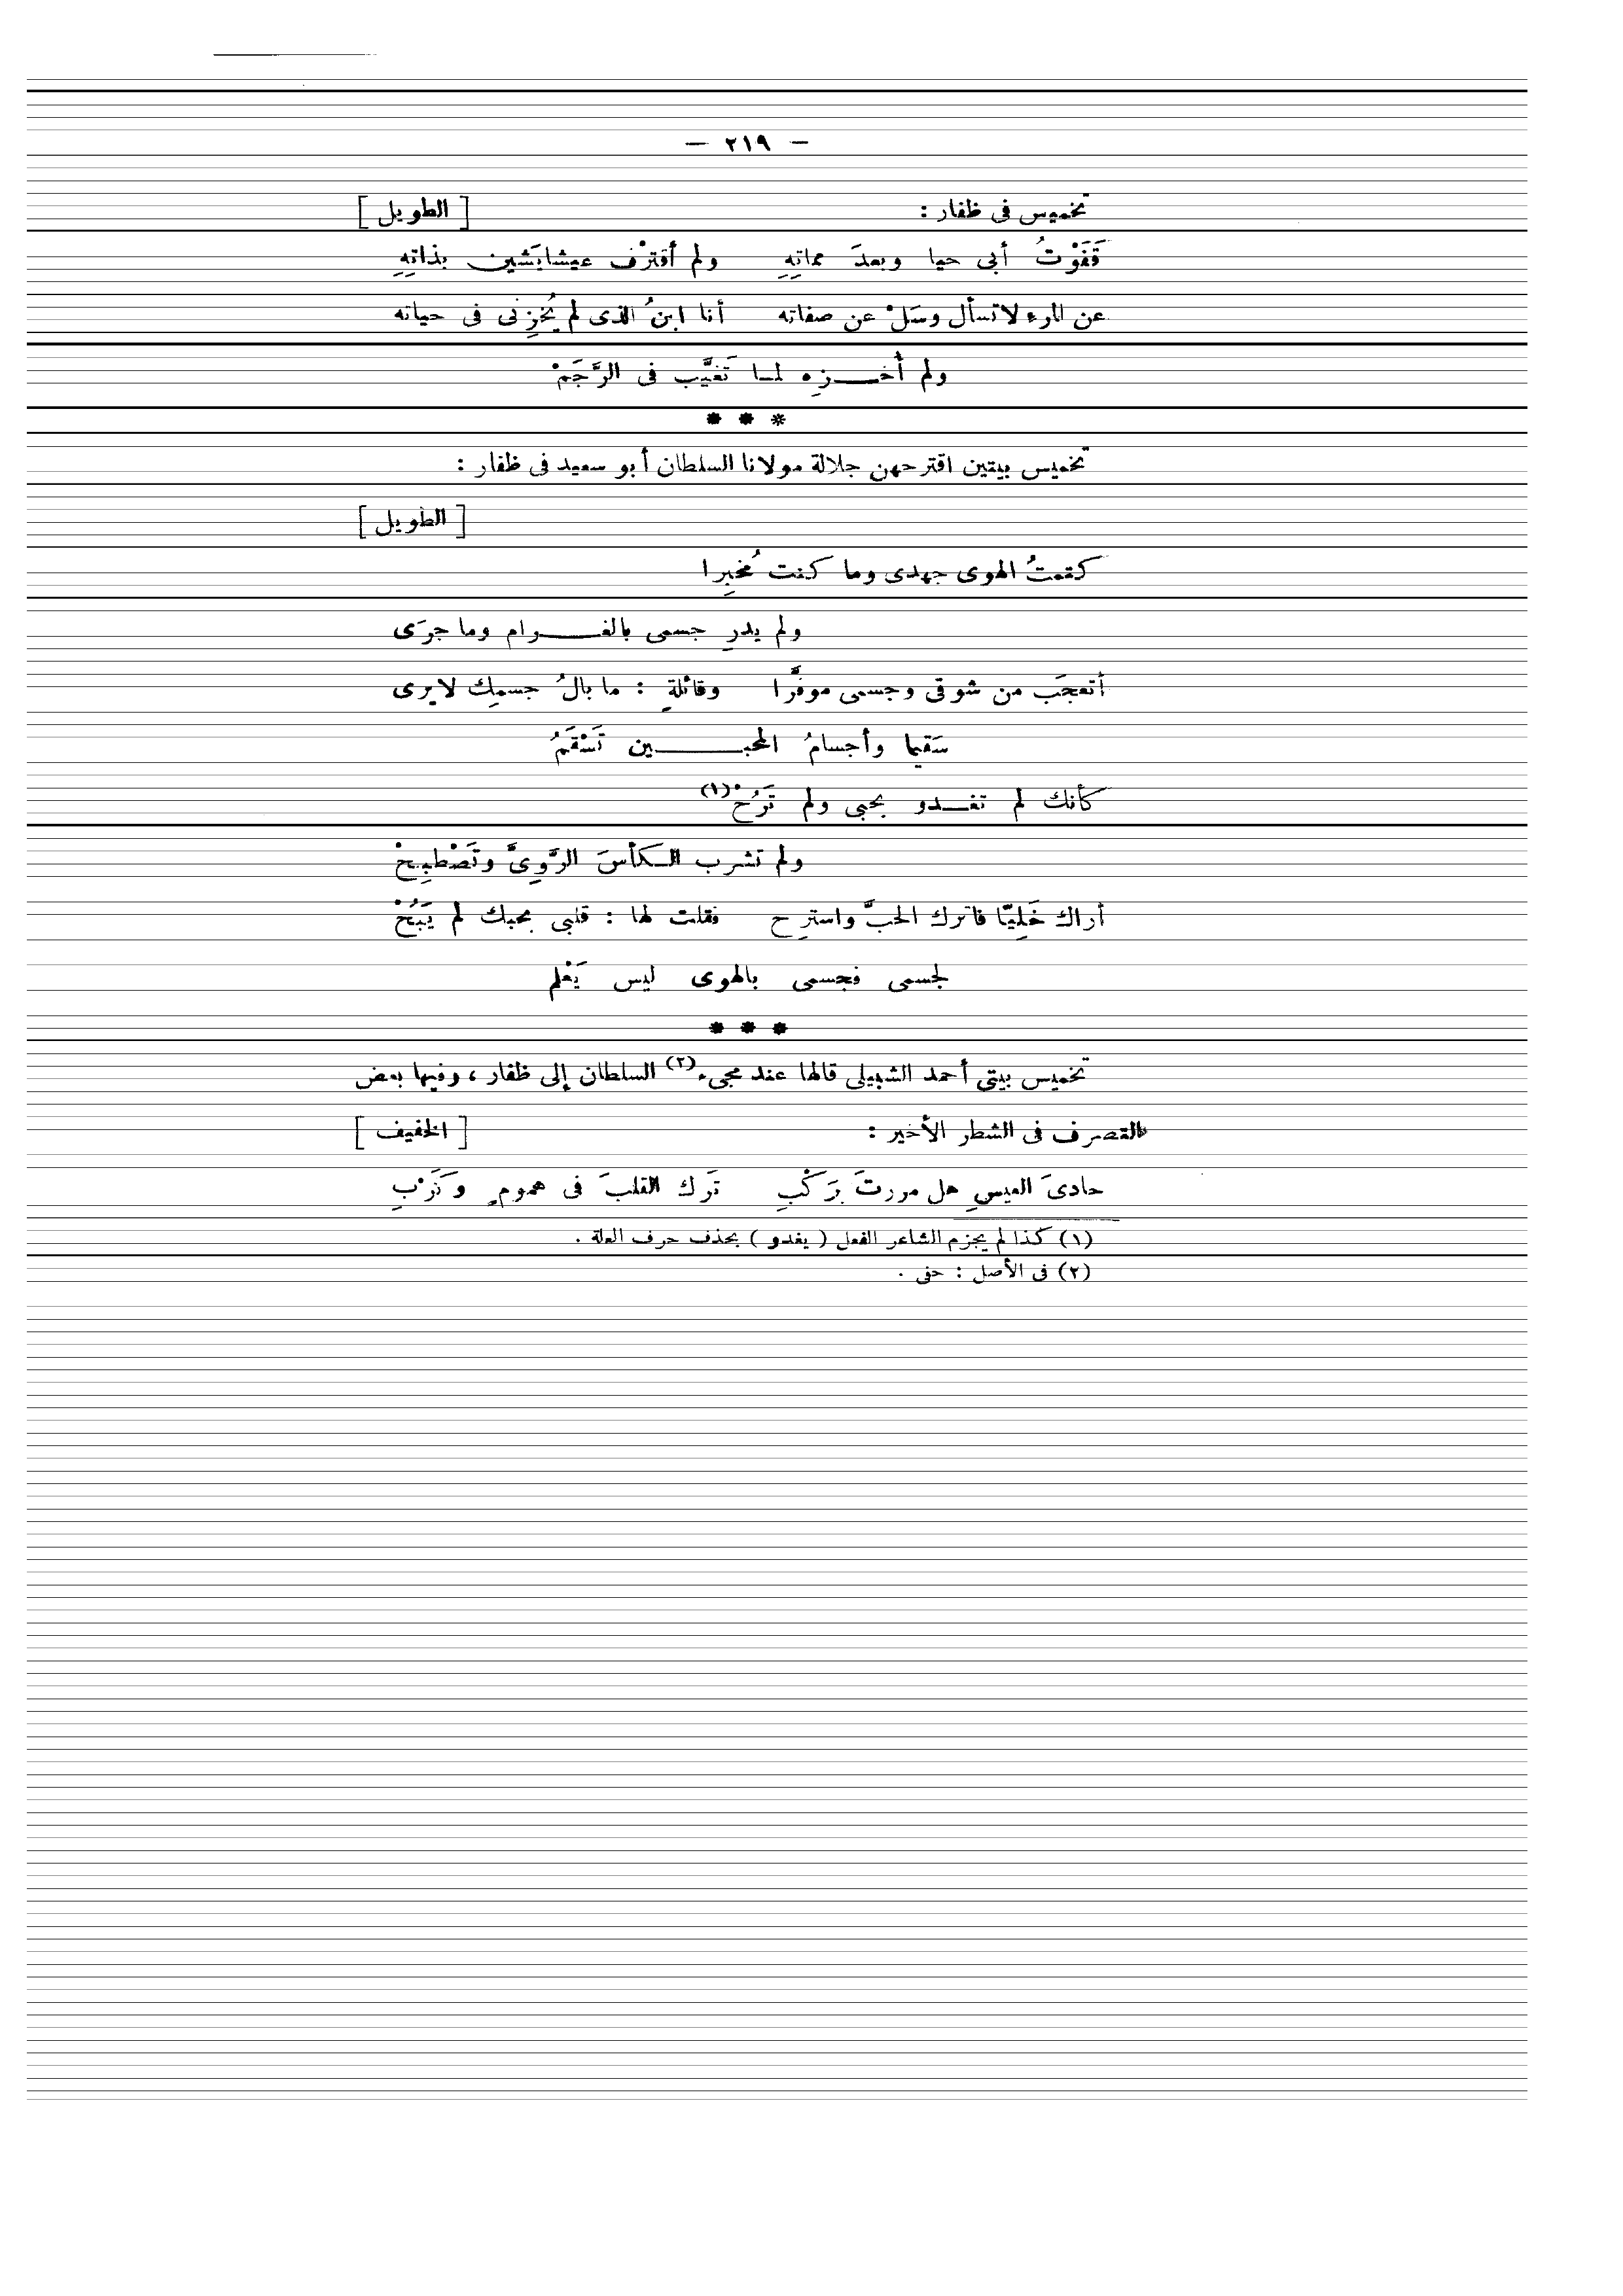 — ٢١٩ —
تخميس فى ظفار : [ الطويل ]
قَفَوْتُ أبى حيا وبعدَ مماتِهِ ولم أقترفْ عيشا يَشين بذاتِهِ
عن المارء لا تسأل وسَلْ عن صفاته أنا ابنُ الذى لم يُخزِنى فى حياته
ولم أُخــزِه لمـا تَغيَّب فى الرَّجَمْ
* * *
تخميس بيتين اقترحهن جلالة مولانا السلطان أبو سعيد فى ظفار :
[ الطويل ]
كتمتُ الهوى جهدى وما كنت مُخبِرا
ولم يدرِ جسمى بالغــرام وما جرَى
أتعجَب من شوقى وجسمى موفَّرا وقائلةٍ : ما بالُ جسمِك لا يرى
سَقيما وأجسامُ المحبــين تَسْقَمُ
كأنك لم تغــدو بحبى ولم تَرُحْ(١)
ولم تشرب الـكأسَ الرَّوِىَّ وتَصْطبِحْ
أراك خَلِيًّا فاترك الحبَّ واسترِح فقلت لها : قلبى بحبك لم يَبُحْ
لجسمى فجسمى بالهوى ليس يَعْلم
* * *
تخميس بيتى أحمد الشبيلى قالها عند مجىء(٢) السلطان إلى ظفار ، وفيها بعض
التصرف فى الشطر الأخير : [ الخفيف ]
حادىَ العيسِ هل مررتَ بَرَكْبِ تَرك القلبَ فى همومٍ وَكَرْبِ
(١) كذا لم يجزم الشاعر الفعل ( يغدو ) بحذف حرف العلة .
(٢) فى الأصل : حتى .